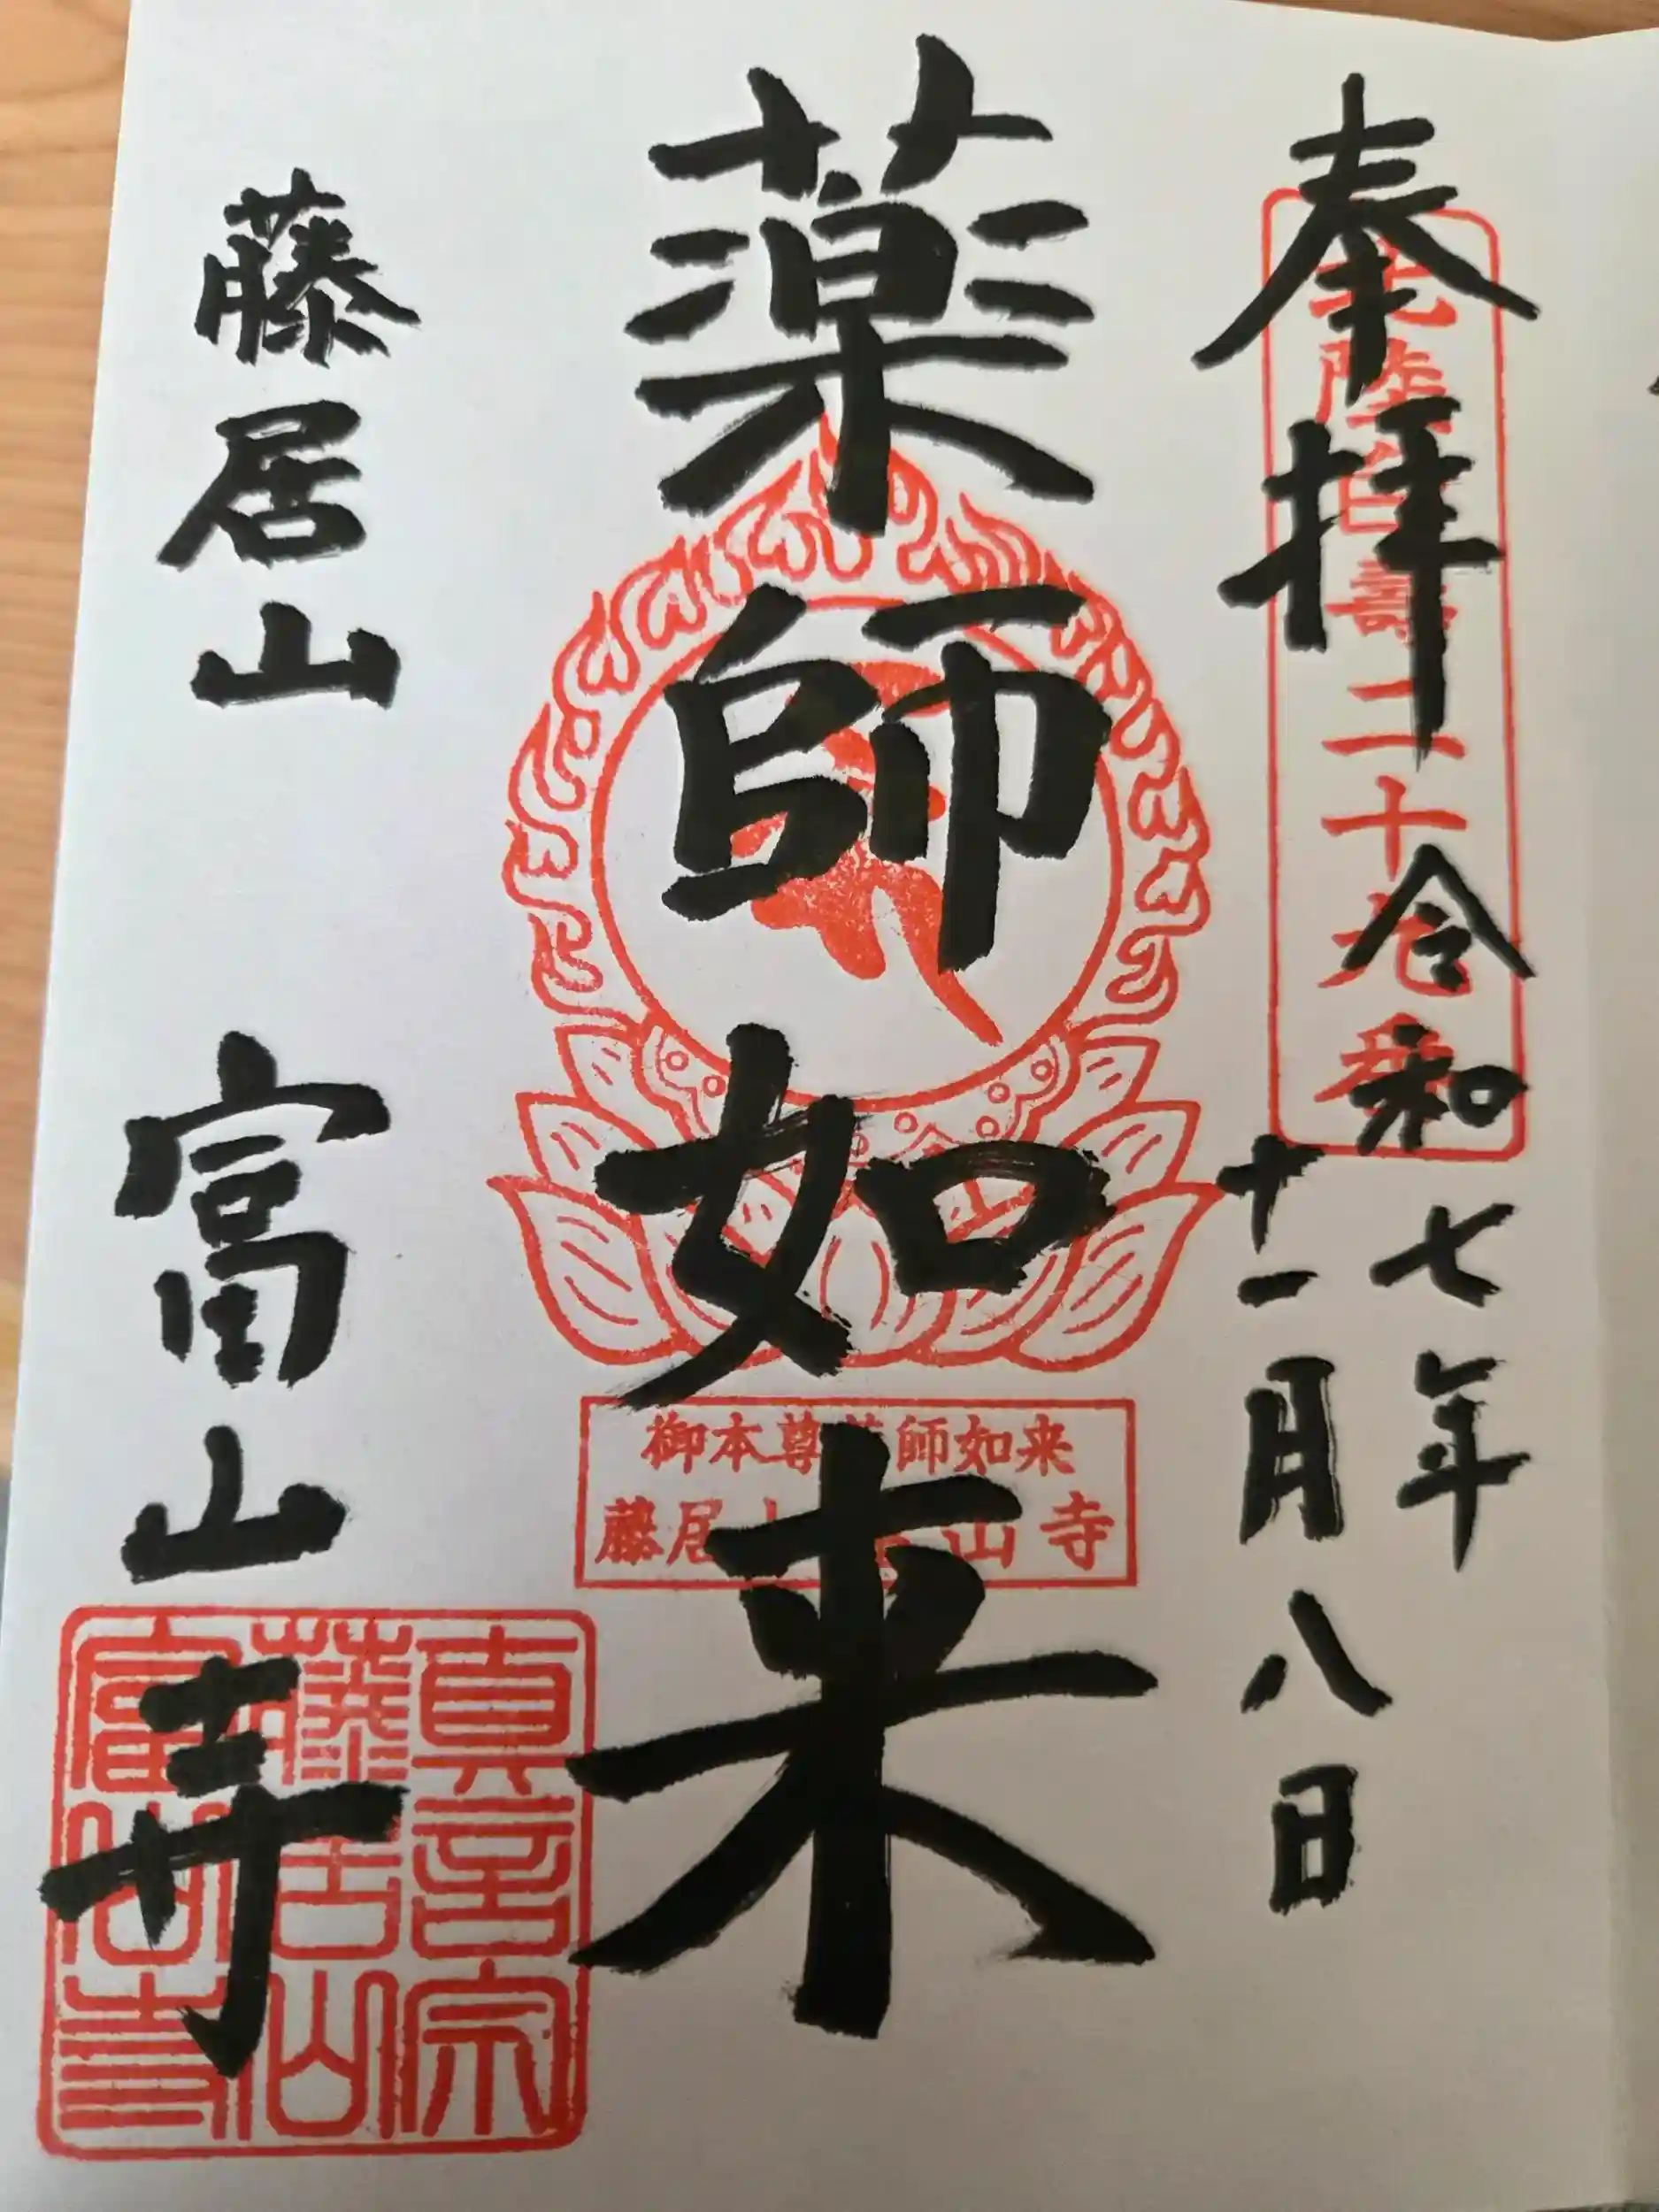 奉拝
令和七年
十一月八日
北陸白寿二十九番
薬師如来
御本尊薬師如来
藤居山富山寺
藤居山 富山寺
真言宗
藤居山
富山寺